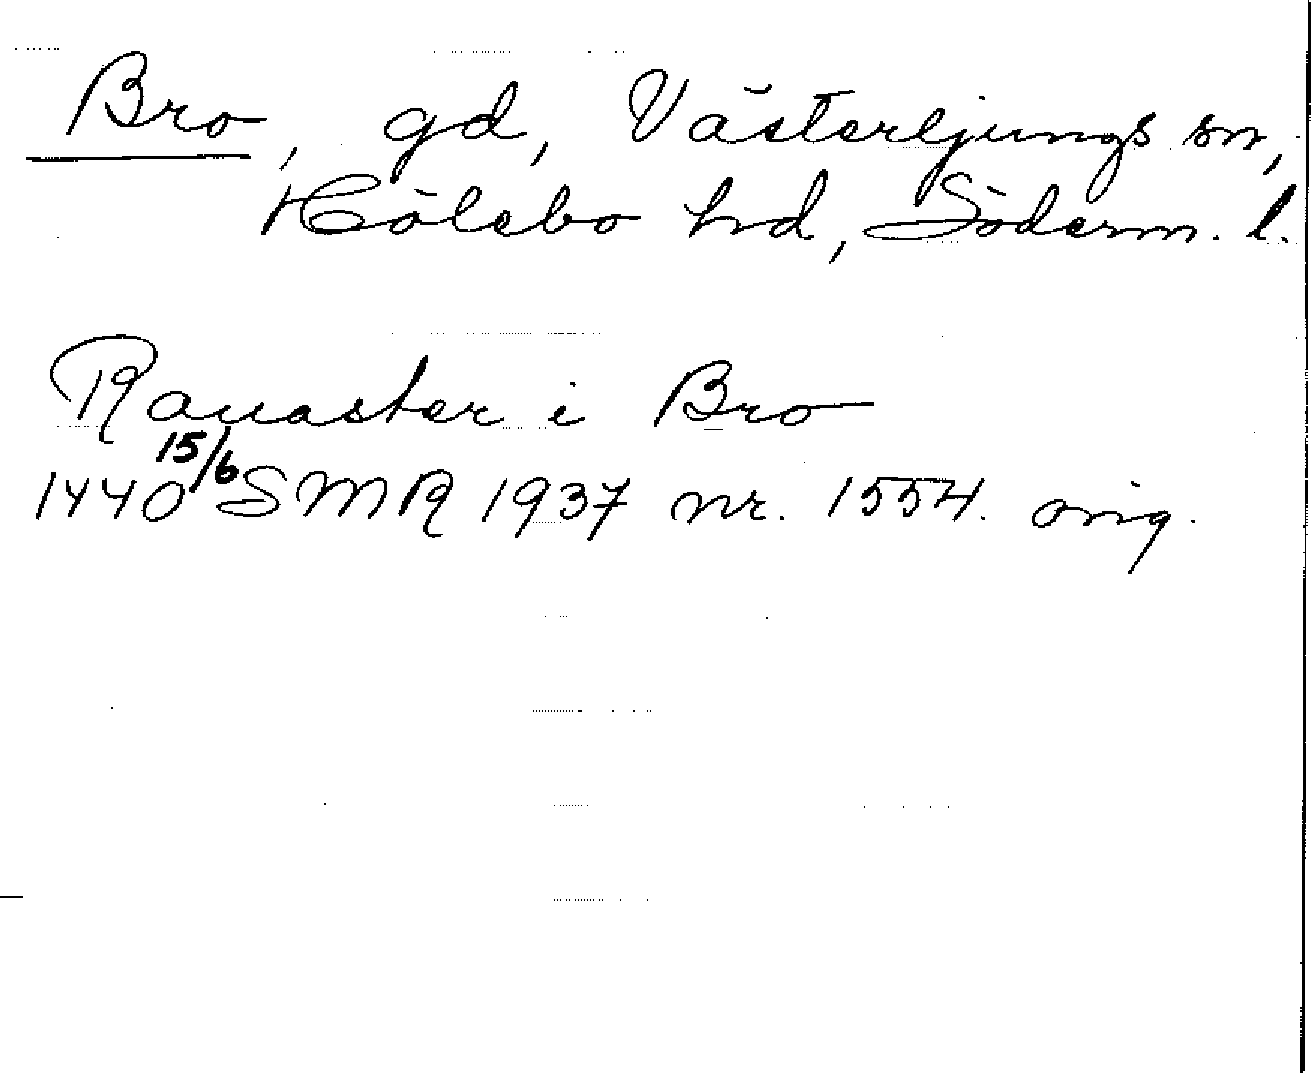 Bro, gd, Västerljungs sn,
Hölebo hd, Söderm. l.
Rauaster i Bro
1440 15/6 SMR 1937 nr. 1554. orig.